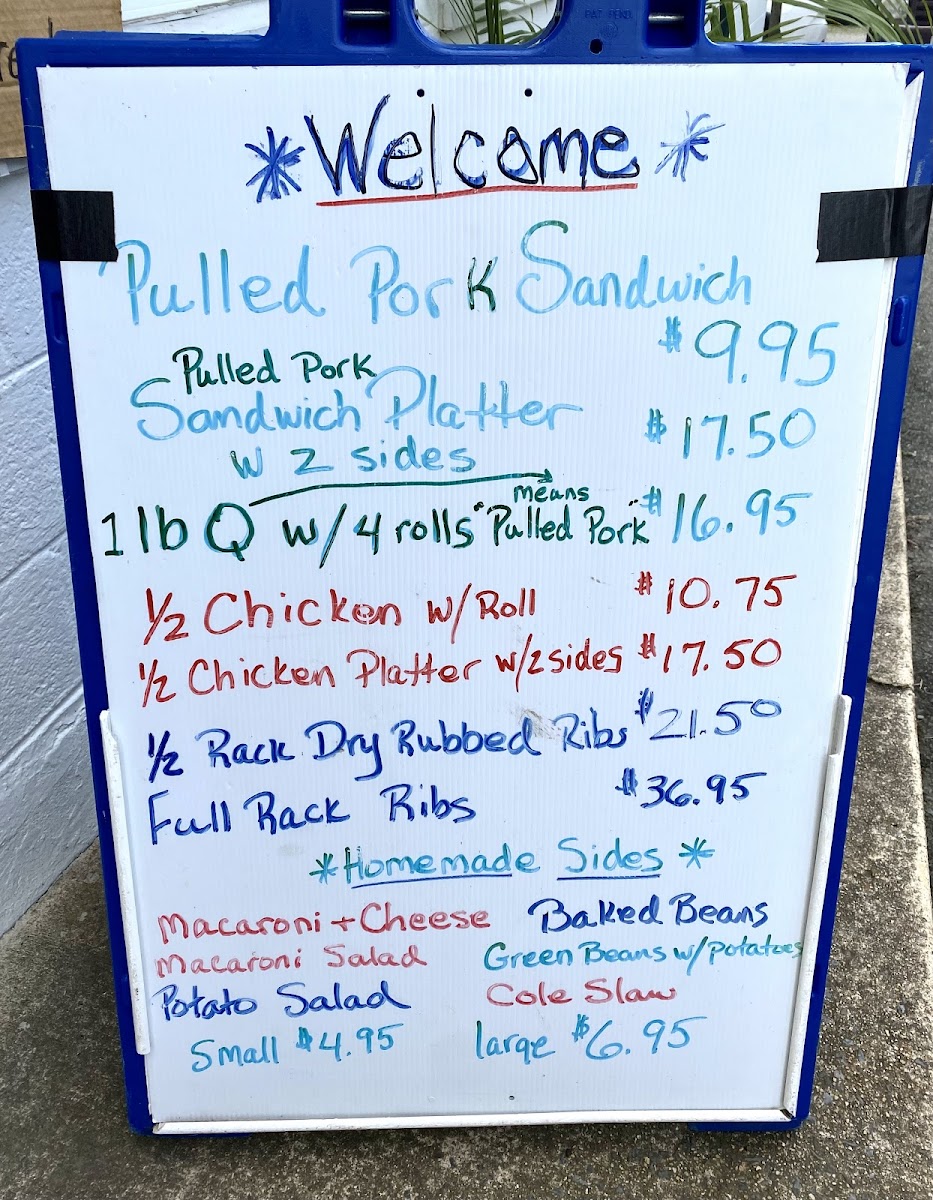 *Welcome*
Pulled Pork Sandwich
$9.95
Pulled Pork
Sandwich Platter $17.50
w 2 sides
means
1 lb Q w/4 rolls "Pulled Pork" $16.95
1/2 Chicken w/Roll $10.75
1/2 Chicken Platter w/2 sides $17.50
1/2 Rack Dry Rubbed Ribs $21.50
Full Rack Ribs $36.95
*Homemade Sides*
Macaroni + Cheese Baked Beans
Macaroni Salad Green Beans w/potatoes
Potato Salad Cole Slaw
Small $4.95 large $6.95